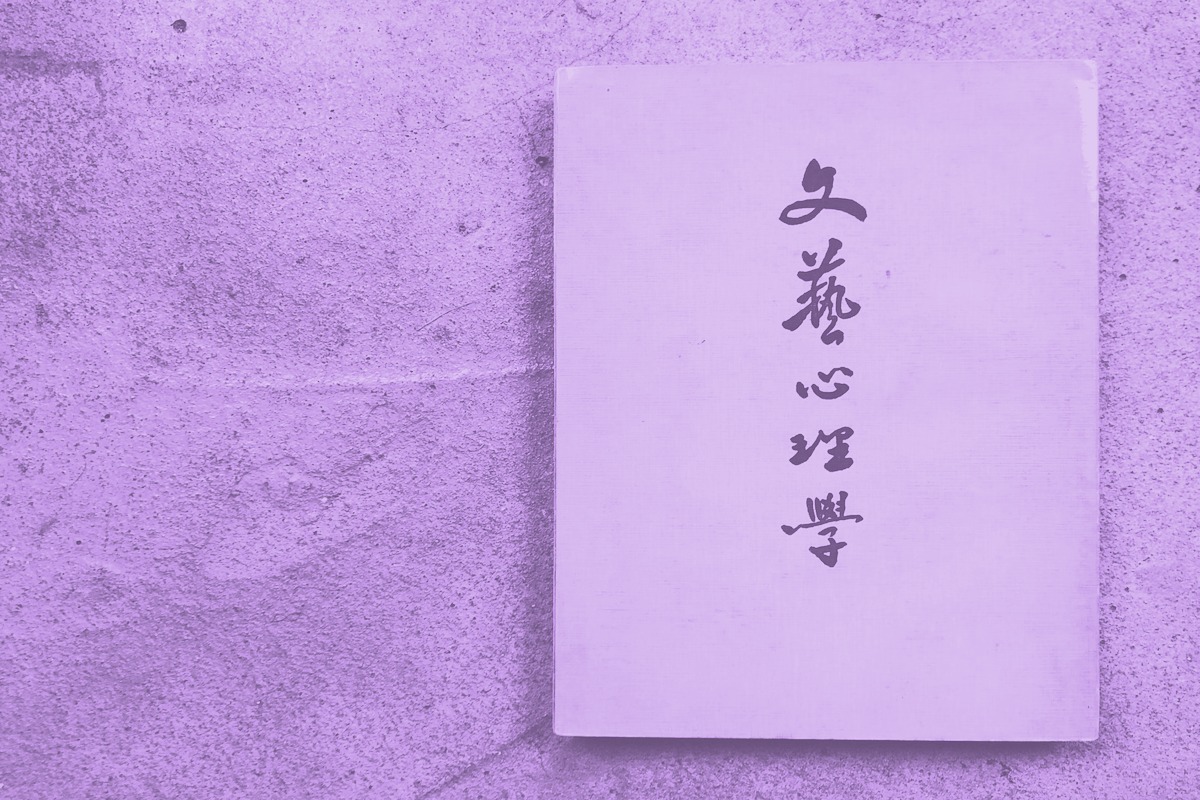 文藝心理學